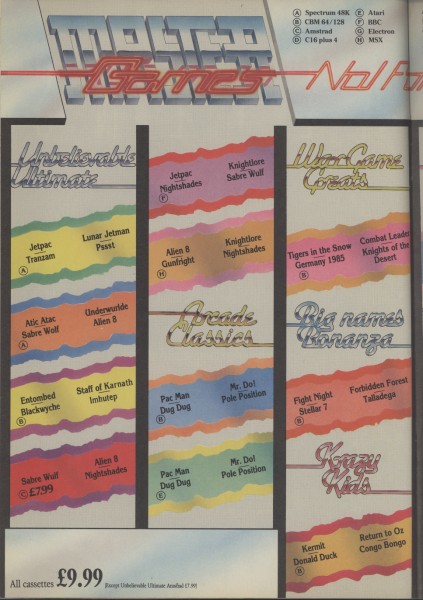 MASTER
Games
No1 Fo
A Spectrum 48K
B CBM 64/128
C Amstrad
D C16 plus 4
E Atari
F BBC
G Electron
H MSX
Unbelievable
Ultimate
Jetpac
Tranzam
Lunar Jetman
Pssst
A
Atic Atac
Sabre Wolf
Underwurlde
Alien 8
A
Entombed
Blackwyche
Staff of Karnath
Imhutep
B
Sabre Wulf
Alien 8
Nightshades
C £7.99
Jetpac
Nightshades
Knightlore
Sabre Wulf
F
Alien 8
Gunfright
Knightlore
Nightshades
H
Arcade
Classics
Pac Man
Dug Dug
Mr. Do!
Pole Position
B
Pac Man
Dug Dug
Mr. Do!
Pole Position
E
War Game
Greats
Tigers in the Snow
Germany 1985
Combat Leader
Knights of the
Desert
B
Big names
Bonanza
Fight Night
Stellar 7
Forbidden Forest
Talladega
B
Krazy
Kids
Kermit
Donald Duck
Return to Oz
Congo Bongo
B
All cassettes £9.99 (Except Unbelievable Ultimate Amstrad £7.99)